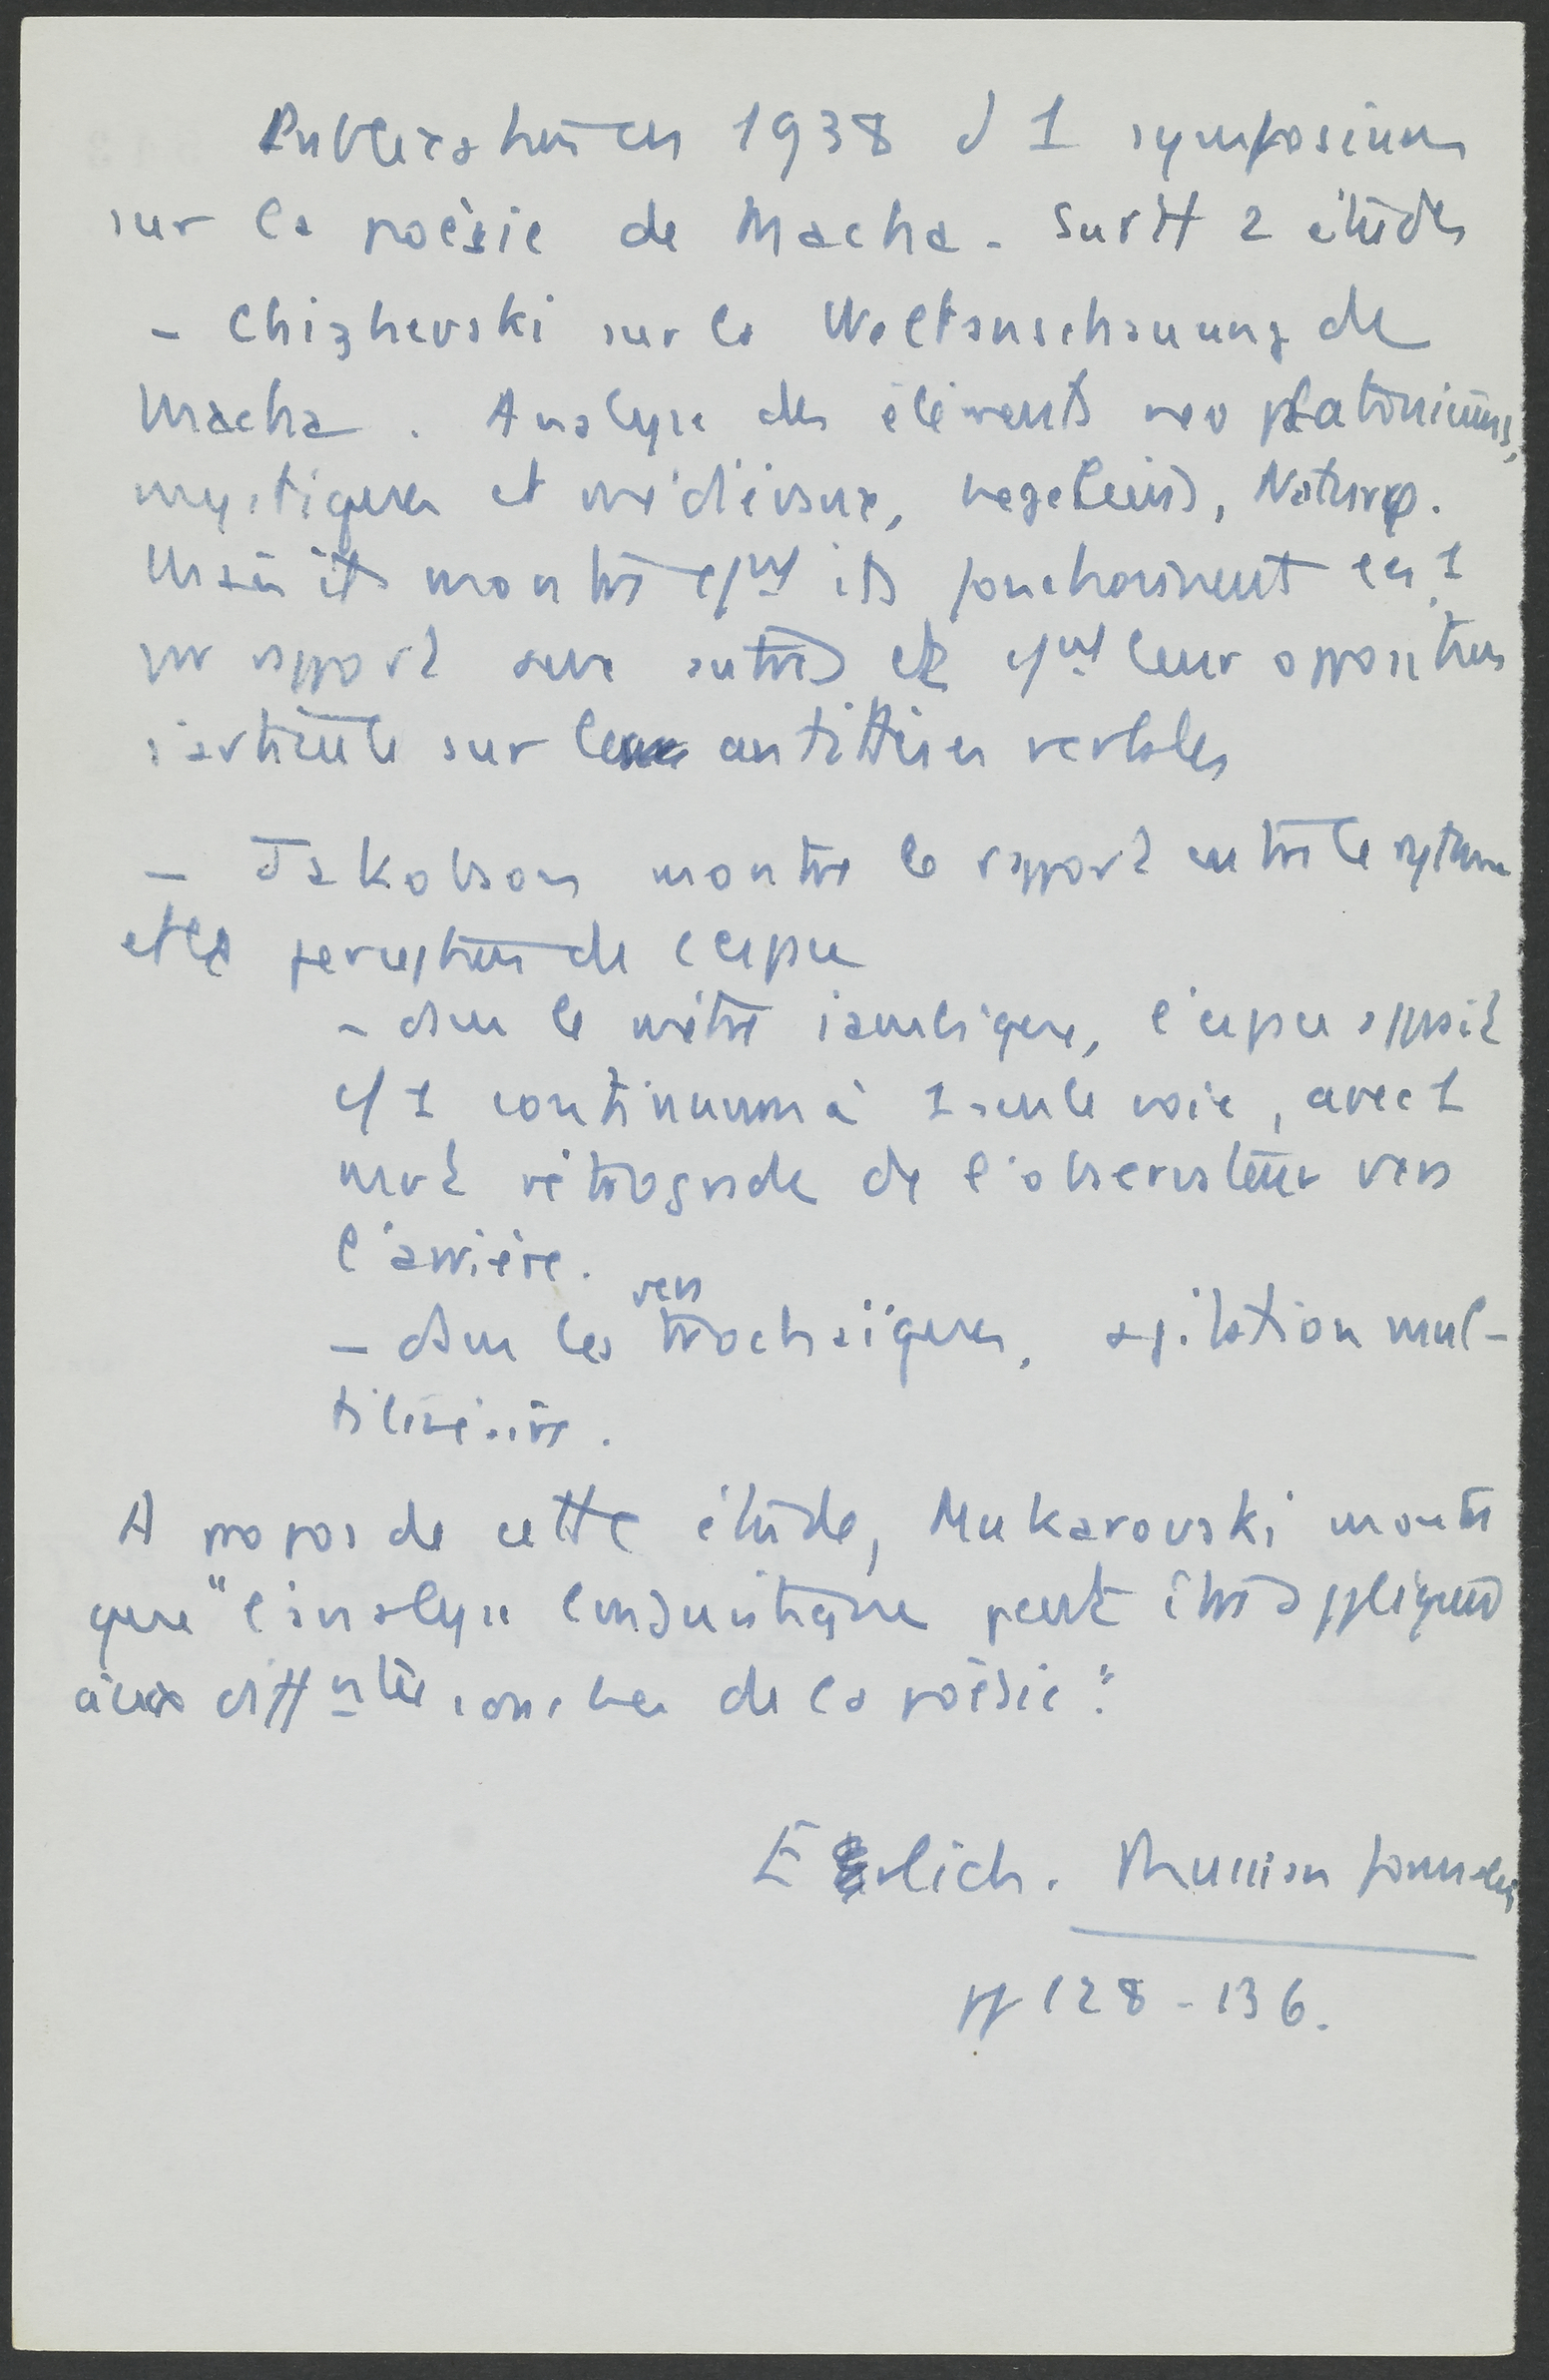 Publication en 1938 d 1 symposium
sur la poésie de Macha. Surtt 2 études
- Chizhevski sur la Weltanschauung de
Macha. Analyse des éléments neo platoniciens,
mystiques et médiévaux, hegeliens, Naturφ.
Mais il montre cpmt ils fonctionnent les 1
par rapport aux autres et cpmt leur opposition
s'articule sur les antithèses verbales
- Jakobson montre le rapport entre le rythme
et la perception de l'espace
- dans le mètre iambique, l'espace apparaît
c/ 1 continuum à 1 seule voie, avec 1
mvt rétrograde de l'observateur vers
l'arrière.
- dans les vers trochaïques, agitation mul-
tilinéaire.
A propos de cette étude, Mukarovski montre
que "l'analyse linguistique peut être appliquée
aux difftes couches de la poésie".
Erlich. Russian formalism
pp 128-136.